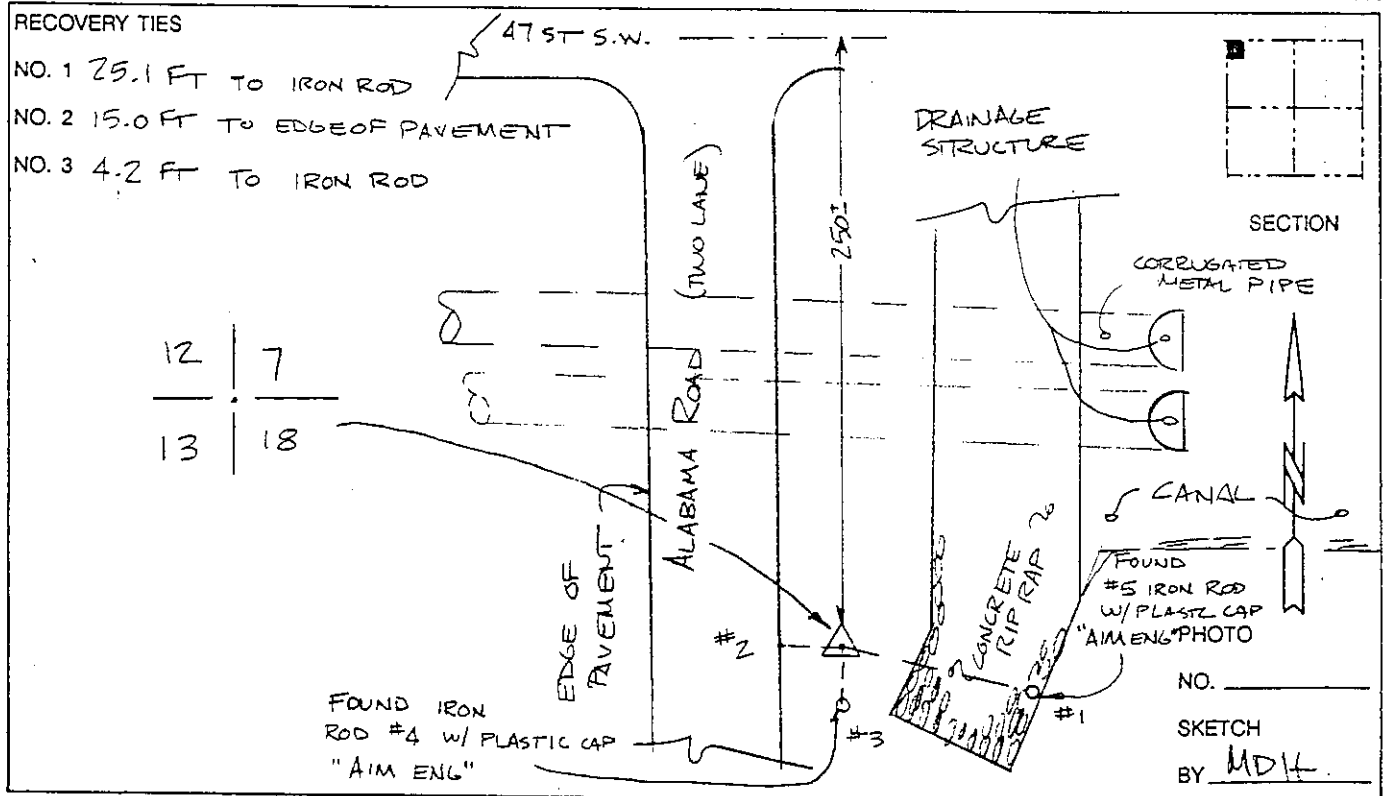 RECOVERY TIES
NO. 1 25.1 FT TO IRON ROD
NO. 2 15.0 FT TO EDGE OF PAVEMENT
NO. 3 4.2 FT TO IRON ROD
47 ST S.W.
DRAINAGE
STRUCTURE
SECTION
(TWO LANE)
250±
CORRUGATED
METAL PIPE
12 7
13 18
ALABAMA ROAD
EDGE OF
PAVEMENT
CANAL
CONCRETE
RIP RAP
FOUND
#5 IRON ROD
W/ PLASTC CAP
"AIM ENG"
PHOTO
NO.
#2
#1
#3
FOUND IRON
ROD #4 W/ PLASTIC CAP
"AIM ENG"
N
SKETCH
BY MDH